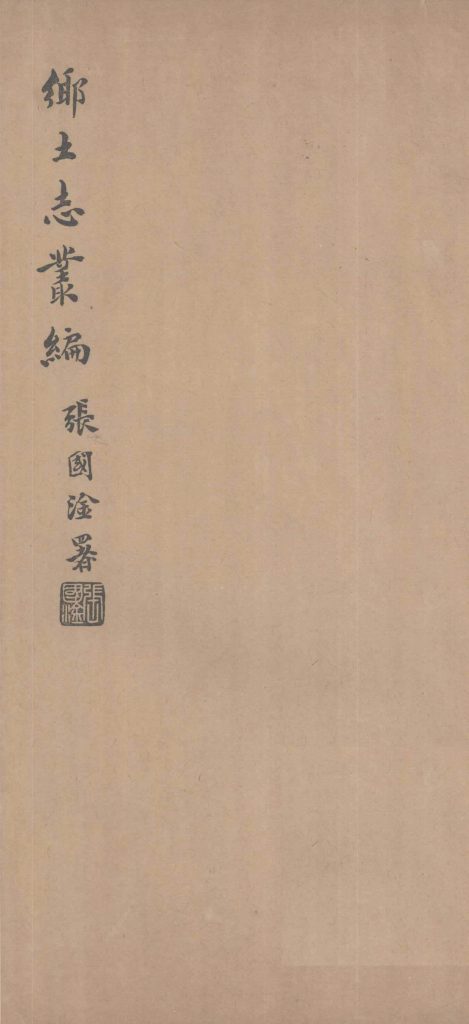 鄉土志叢編
張國淦署
張國淦